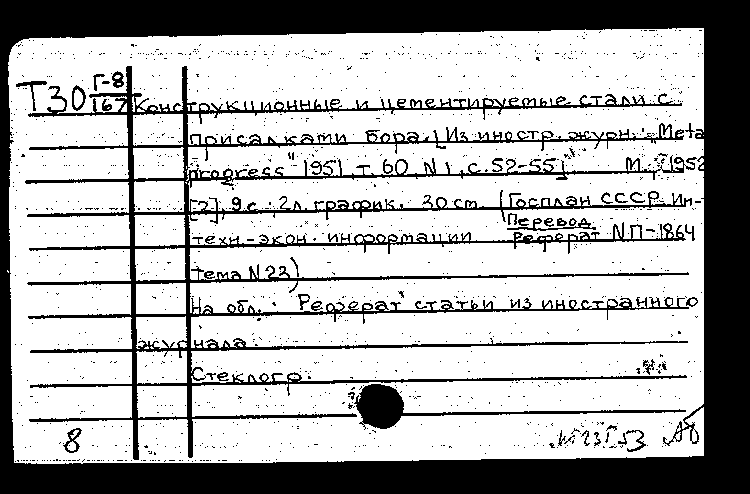 Т30 Г-8/167 Конструкционные и цементируемые стали с
присадками бора. [Из иностр. журн. "Metal
progress" 1951, т. 60, N 1, с. 52-55] М., 1952
[2], 9 с. 2 л. график. 30 см (Госплан СССР Ин-
техн.-экон. информации Перевод/Реферат N П-1864
тема N 23)
На обл.: Реферат статьи из иностранного
журнала.
Стеклогр.
8